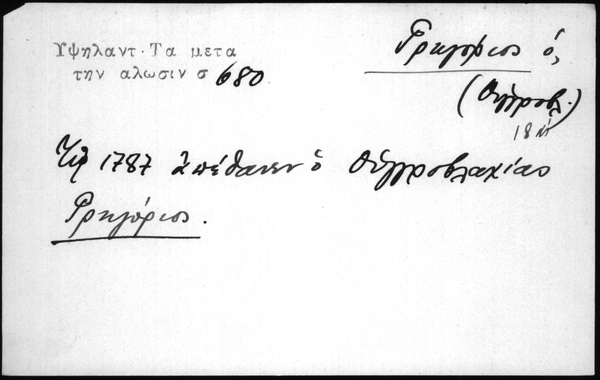 Υψηλαντ. Τα μετα
την αλωσιν σ 680
Γρηγόριος ὁ,
(Οὑγγροβλ.)
18 αἰ
Τῷ 1787 ἀπέθανεν ὁ Οὑγγροβλαχίας
Γρηγόριος.